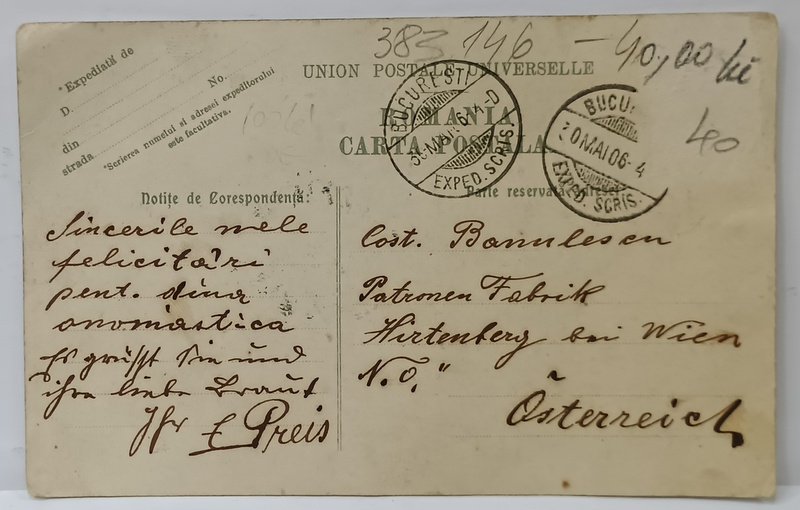 383,146 — 40,00 lei
40
"Expediată de
D.
No.
din
strada
"Scrierea numelui si adresei expeditorului
este facultativa.
UNION POSTALE UNIVERSELLE
ROMANIA
CARTA POSTALA
BUCURESTI
30 MAI 06
EXPED. SCRIS.
BUCU
30 MAI 06-4
EXPED. SCRIS.
Notițe de Corespondență:
Parte reservată
Sincerile mele
felicitări
pent. diua
onomastica
Es grüsst Sie und
ihre liebe Braut
Ihr E Preis
Cost. Banulescu
Patronen Fabrik
Hirtenberg bei Wien
N.O."
Österreich